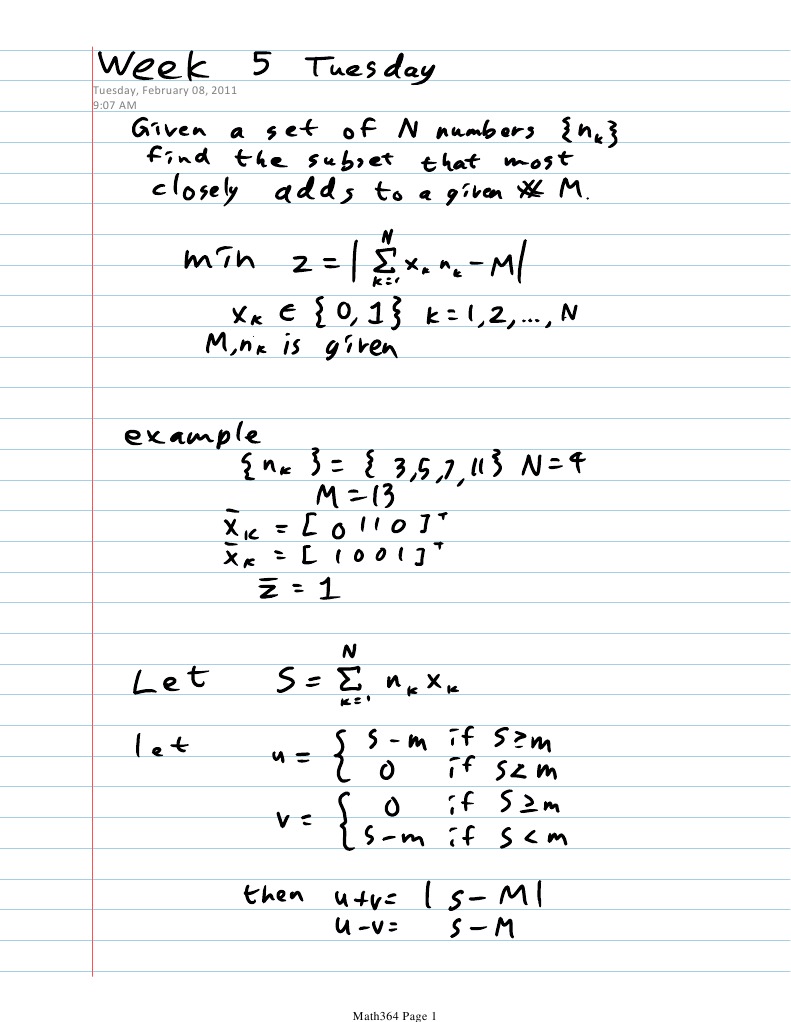 Week 5 Tuesday
Tuesday, February 08, 2011
9:07 AM
Given a set of N numbers {nₖ}
find the subset that most
closely adds to a given # M.
min z = | Σₖ₌₁ᴺ xₖ nₖ - M |
xₖ ∈ {0, 1} k = 1, 2, ..., N
M, nₖ is given
example
{nₖ} = { 3, 5, 7, 11} N = 4
M = 13
x̄ₖ = [ 0 1 1 0 ]ᵀ
x̄ₖ = [ 1 0 0 1 ]ᵀ
z̄ = 1
Let S = Σₖ₌₁ᴺ nₖ xₖ
let u = { s - m if s ≥ m
0 if s < m
v = { 0 if s ≥ m
s - m if s < m
then u + v = | s - M |
u - v = s - M
Math364 Page 1